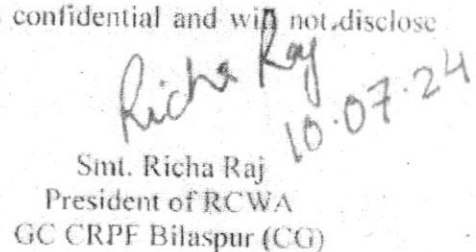 confidential and will not disclose
Richa Raj
10.07.24
Smt. Richa Raj
President of RCWA
GC CRPF Bilaspur (CG)